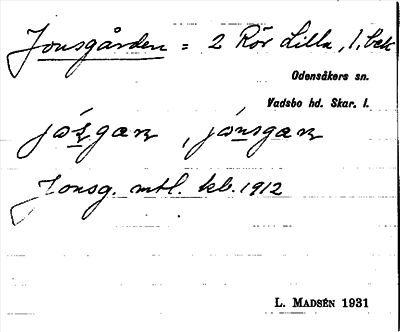 Jonsgården = 2 Rör Lilla, 1. bek
Odensåkers sn.
Vadsbo hd. Skar. l.
jónsgan
Jonsg. mtl. kb. 1912
L. MADSÉN 1931